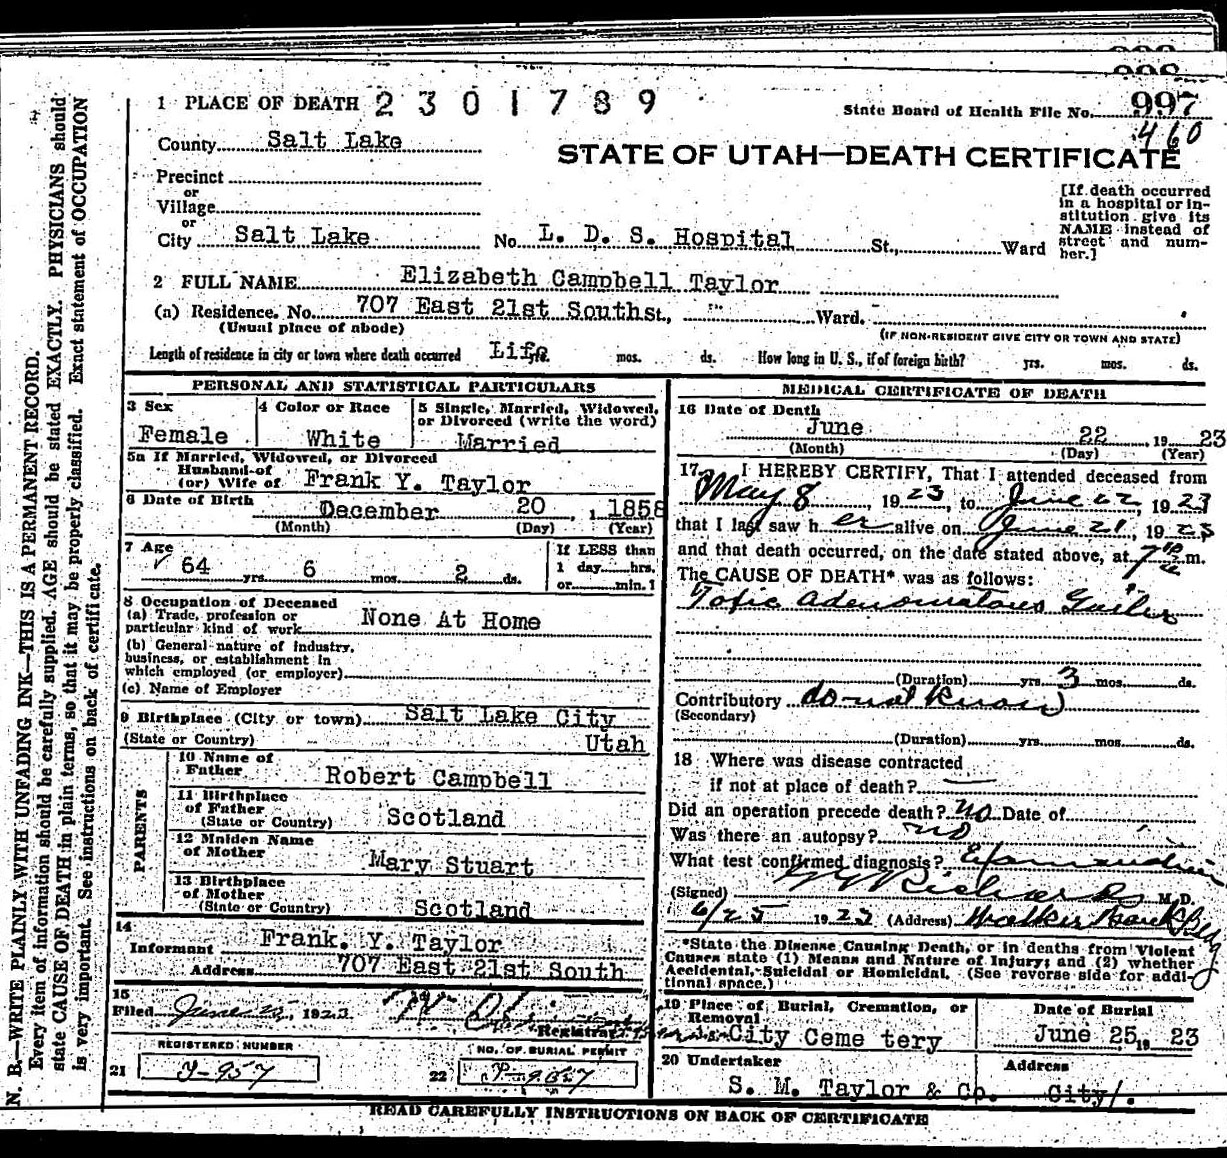 1 PLACE OF DEATH 2 3 0 1 7 8 9
State Board of Health File No. 997
460
County Salt Lake
STATE OF UTAH—DEATH CERTIFICATE
Precinct
or
Village
or
City Salt Lake No. L. D. S. Hospital St., Ward
[If death occurred in a hospital or institution give its NAME instead of street and number.]
2 FULL NAME Elizabeth Campbell Taylor
(a) Residence. No. 707 East 21st South St., Ward.
(Usual place of abode)
(IF NON-RESIDENT GIVE CITY OR TOWN AND STATE)
Length of residence in city or town where death occurred Life yrs. mos. ds. How long in U. S., if of foreign birth? yrs. mos. ds.
PERSONAL AND STATISTICAL PARTICULARS
3 Sex
Female
4 Color or Race
White
5 Single, Married, Widowed,
or Divorced (write the word)
Married
5a If Married, Widowed, or Divorced
Husband of
(or) Wife of Frank Y. Taylor
6 Date of Birth
December 20, 1858
(Month) (Day) (Year)
7 Age
64 yrs. 6 mos. 2 ds.
If LESS than
1 day hrs.
or min.
8 Occupation of Deceased
(a) Trade, profession or
particular kind of work None At Home
(b) General nature of industry,
business, or establishment in
which employed (or employer)
(c) Name of Employer
9 Birthplace (City or town) Salt Lake City
(State or Country) Utah
PARENTS
10 Name of
Father Robert Campbell
11 Birthplace
of Father
(State or Country) Scotland
12 Maiden Name
of Mother Mary Stuart
13 Birthplace
of Mother
(State or Country) Scotland
14
Informant Frank. Y. Taylor
Address 707 East 21st South
15
Filed June 25, 1923
Registrar
REGISTERED NUMBER
21
NO. OF BURIAL PERMIT
22
MEDICAL CERTIFICATE OF DEATH
16 Date of Death
June 22, 1923
(Month) (Day) (Year)
17 I HEREBY CERTIFY, That I attended deceased from
May 8 1923, to June 22, 1923
that I last saw her alive on June 21, 1923
and that death occurred, on the date stated above, at 7 m.
The CAUSE OF DEATH* was as follows:
Toxic adenomatous Goiter
(Duration) yrs. 3 mos. ds.
Contributory do not know
(Secondary)
(Duration) yrs. mos. ds.
18 Where was disease contracted
if not at place of death? —
Did an operation precede death? no Date of
Was there an autopsy? no
What test confirmed diagnosis? Examination
(Signed) Richards M. D.
6/25 1923 (Address) Walker Bank Bldg
*State the Disease Causing Death, or in deaths from Violent
Causes state (1) Means and Nature of Injury; and (2) whether
Accidental, Suicidal or Homicidal. (See reverse side for addi-
tional space.)
19 Place of Burial, Cremation, or
Removal
City Ceme tery
Date of Burial
June 25, 1923
20 Undertaker
S. M. Taylor & Co.
Address
City/.
READ CAREFULLY INSTRUCTIONS ON BACK OF CERTIFICATE
N. B.—WRITE PLAINLY WITH UNFADING INK—THIS IS A PERMANENT RECORD.
Every item of information should be carefully supplied. AGE should be stated EXACTLY. PHYSICIANS should
state CAUSE OF DEATH in plain terms, so that it may be properly classified. Exact statement of OCCUPATION
is very important. See instructions on back of certificate.